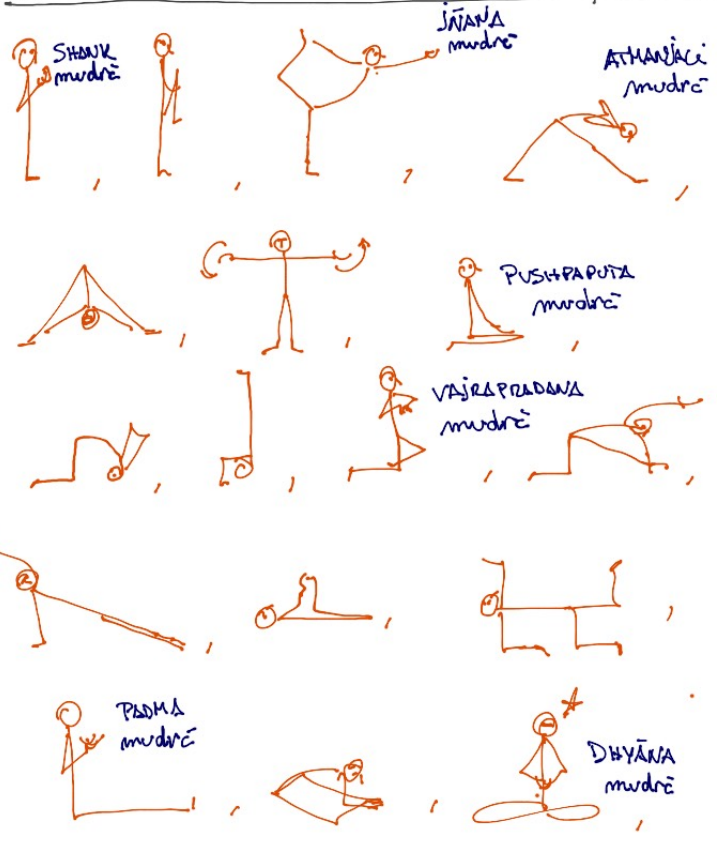 JÑANA
mudrā
SHANK
mudrā
ATMANJALI
mudrā
T
PUSHPAPUTA
mudrā
VAJRAPRADANA
mudrā
R
PADMA
mudrā
DHYĀNA
mudrā